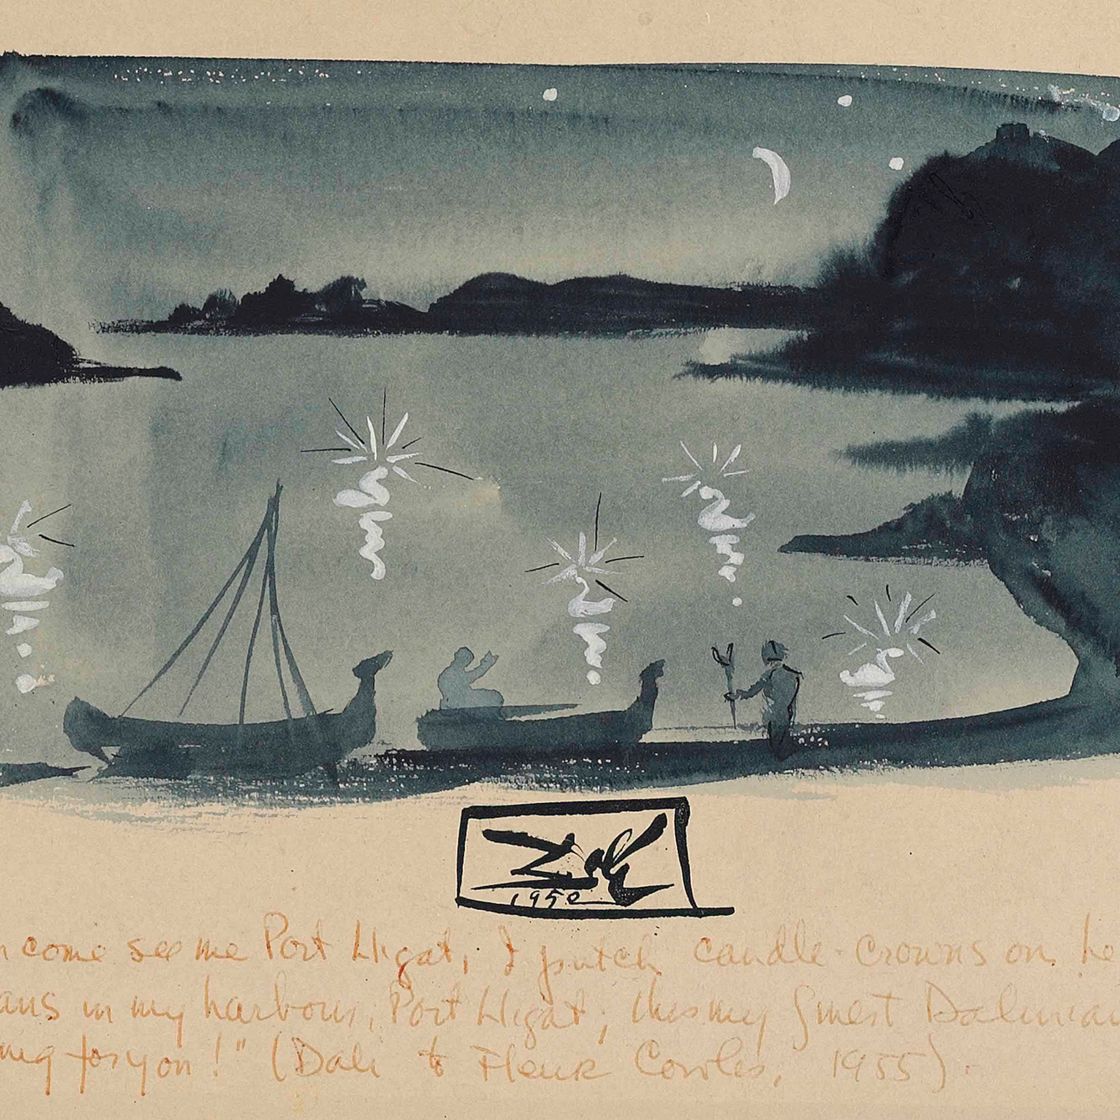 Dalí
1950
come see me Port Lligat, I putch candle-crowns on he
ans in my harbour, Port Lligat; this my finest
ing for you!" (Dali to Fleur Cowles, 1955).